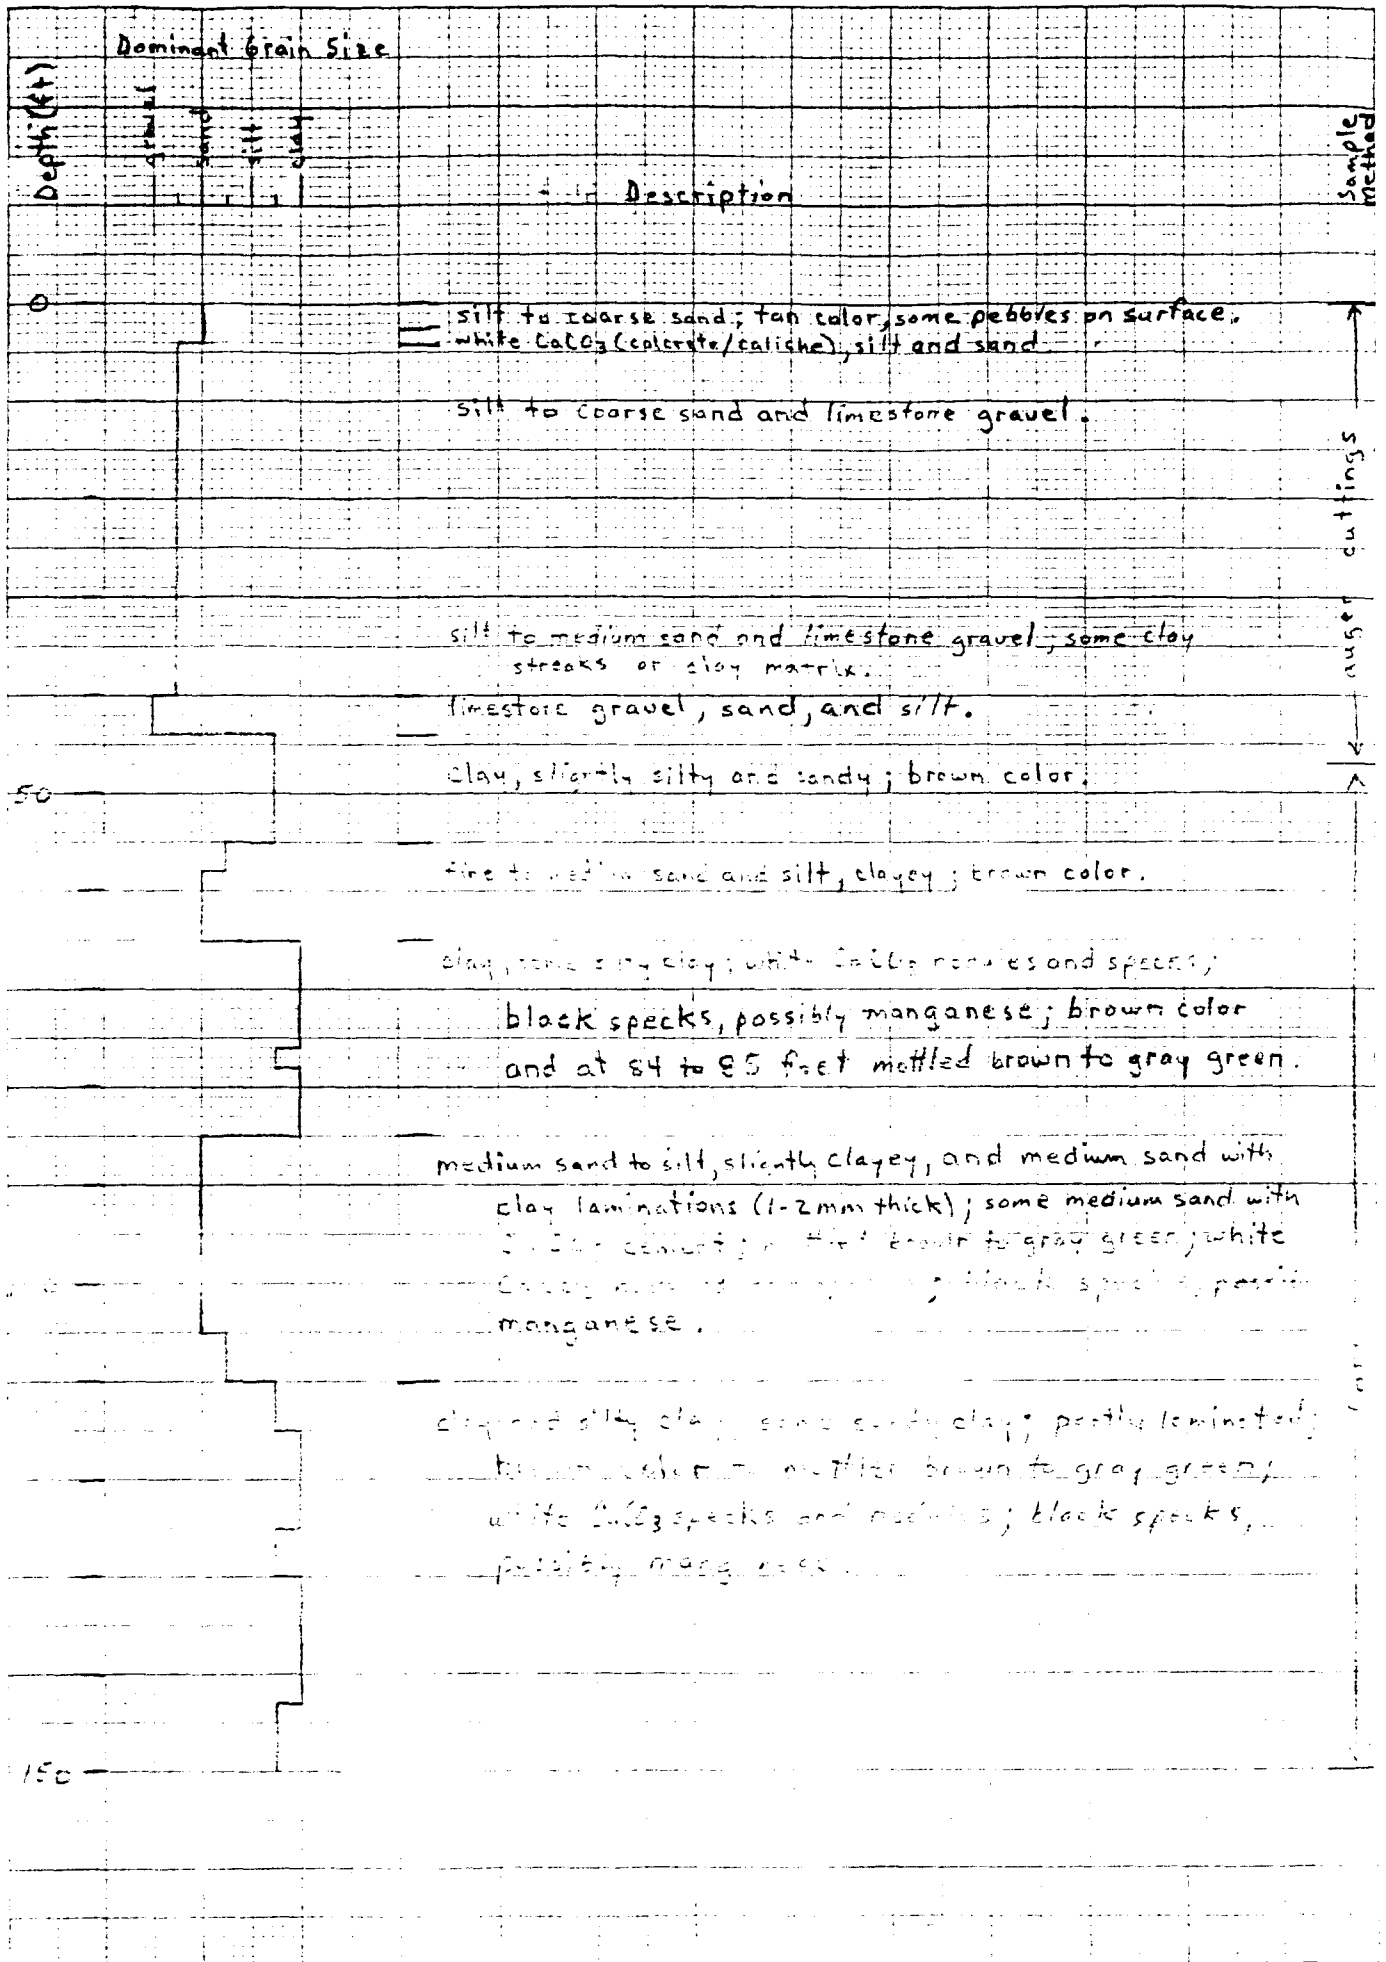 Dominant Grain Size
Depth (ft)
gravel
sand
silt
clay
Description
Sample method
0
silt to coarse sand; tan color, some pebbles on surface.
white CaCO3 (calcrete/caliche), silt and sand
silt to coarse sand and limestone gravel.
auger cuttings
silt to medium sand and limestone gravel; some clay
streaks or clay matrix.
limestone gravel, sand, and silt.
clay, slightly silty and sandy; brown color.
50
fine to medium sand and silt, clayey; brown color.
clay, clay; white CaCO3 nodules and specks;
black specks, possibly manganese; brown color
and at 84 to 85 feet mottled brown to gray green.
medium sand to silt, slightly clayey, and medium sand with
clay laminations (1-2mm thick); some medium sand with
cement; brown to gray green; white
black specks,
manganese.
clay and silty clay some sandy clay; partly laminated;
brown color to mottled brown to gray green;
white CaCO3 specks and nodules; black specks,
possibly manganese.
150